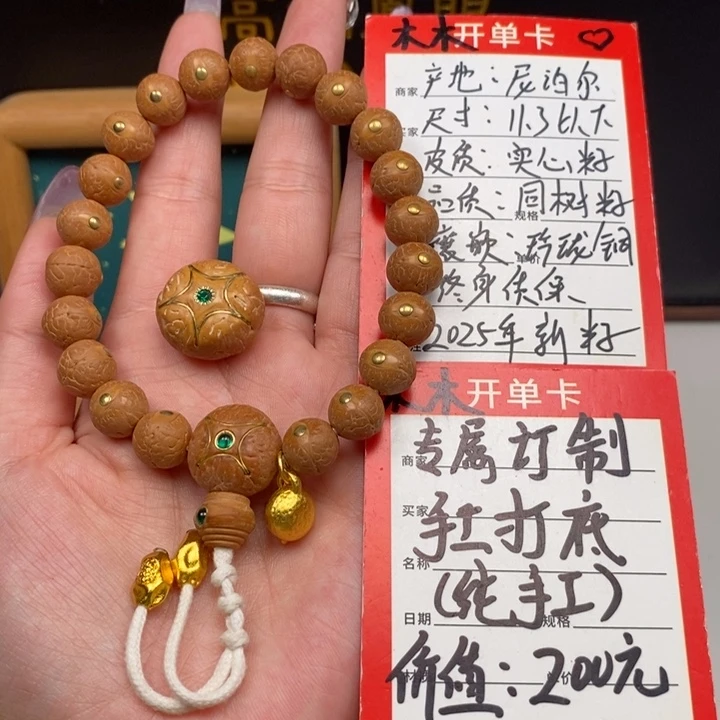 木木开单卡
商家 产地：尼泊尔
买家 尺寸：11.3以下
皮质：实心籽
品质：同树籽
规格
镶嵌：玲珑/铜
单价
终身质保
2025年新籽
木木开单卡
商家 专属订制
买家 手工打底
名称 (纯手工)
日期 规格
价值：200元